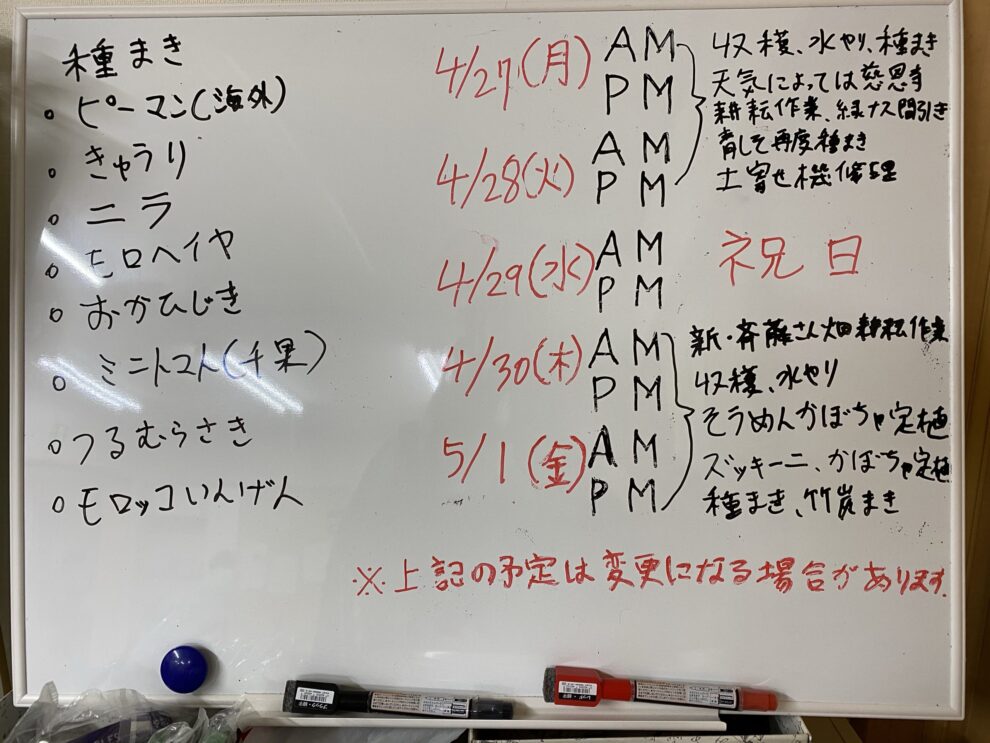 種まき
○ ピーマン(海外)
○ きゅうり
○ ニラ
○ モロヘイヤ
○ おかひじき
○ ミニトマト(千果)
○ つるむらさき
○ モロッコいんげん
4/27(月) AM
PM
収穫、水やり、種まき
天気によっては慈恩寺
耕耘作業、緑ナス間引き
青しそ再度種まき
土寄せ機修理
4/28(火) AM
PM
4/29(水) AM
PM
祝日
4/30(木) AM
PM
新・斉藤さん畑耕耘作業
収穫、水やり
そうめんかぼちゃ定植
ズッキーニ、かぼちゃ定植
種まき、竹炭まき
5/1(金) AM
PM
※上記の予定は変更になる場合があります.